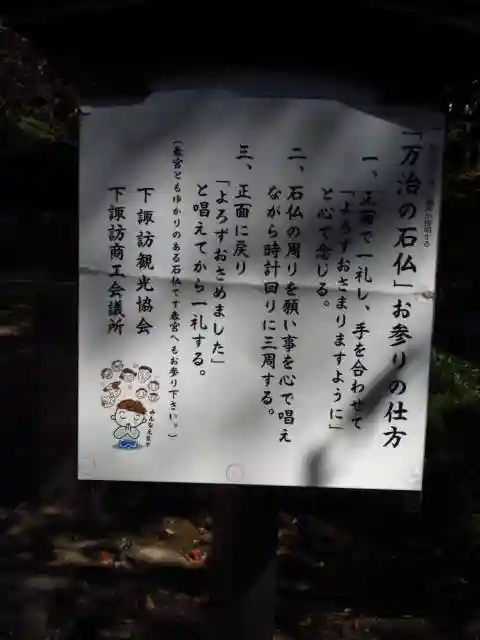 「万治の石仏」お参りの仕方
一、正面で一礼し、手を合わせて
「よろずおさまりますように」
と心で念じる。
二、石仏の周りを願い事を心で唱え
ながら時計回りに三周する。
三、正面に戻り
「よろずおさめました」
と唱えてから一礼する。
(春宮ともゆかりのある石仏です春宮へもお参り下さい。)
下諏訪観光協会
下諏訪商工会議所
みんな元気で